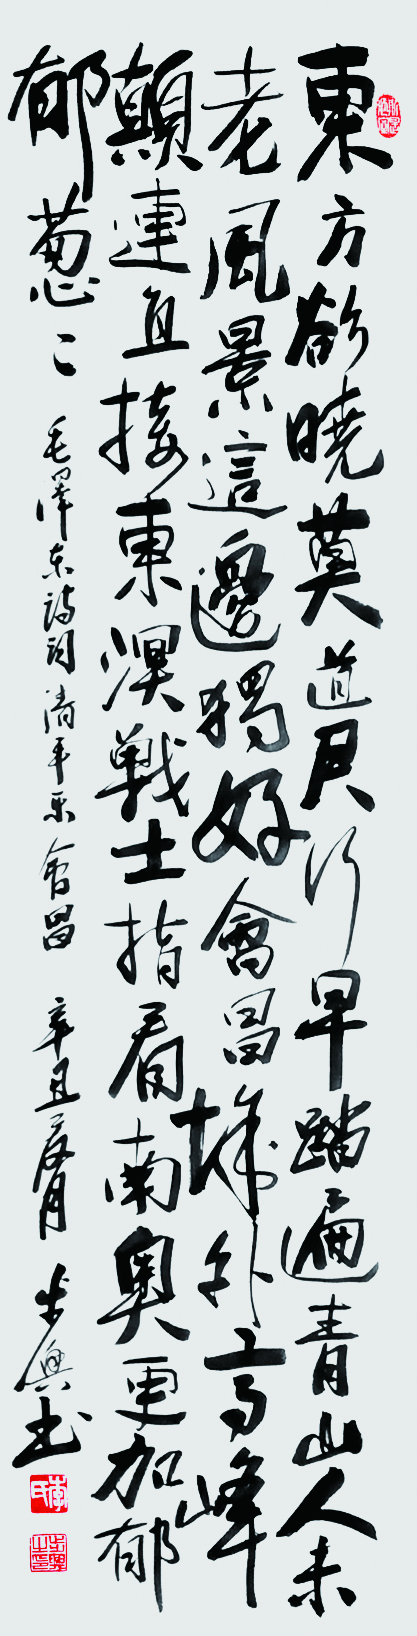 東方欲曉莫道君行早踏遍青山人未
老風景這邊獨好會昌城外高峰
顛連直接東溟戦士指看南奥更加郁
郁葱〻 毛澤东詩词清平乐會昌 辛丑 步興书
李氏